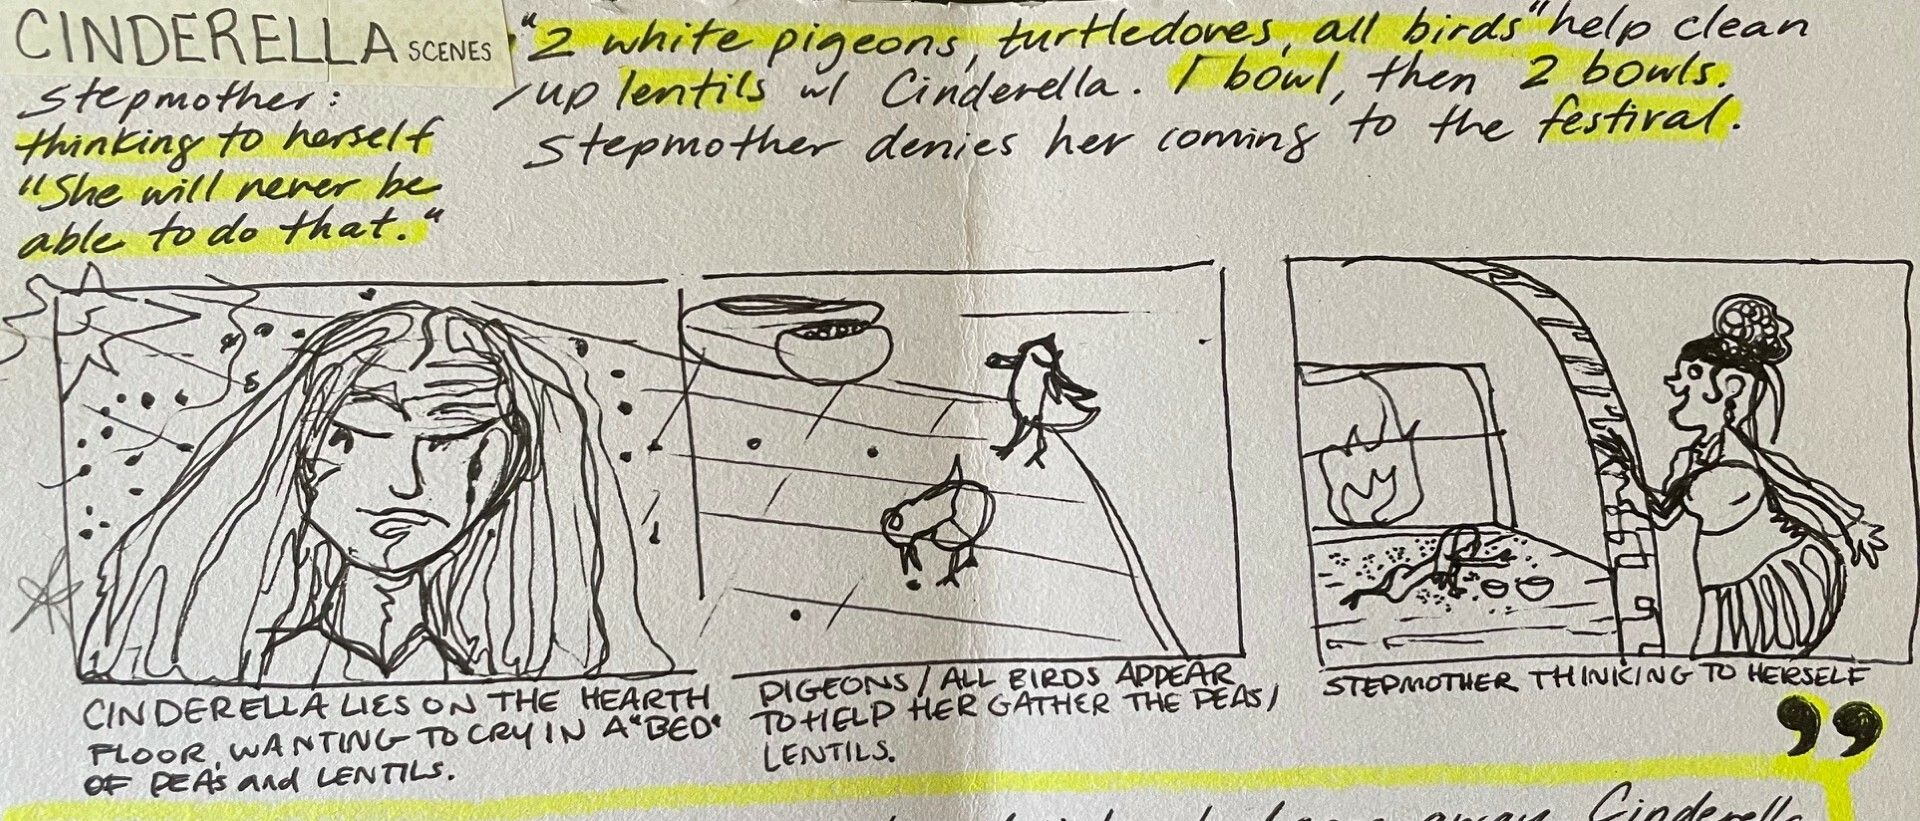 CINDERELLA SCENES
Stepmother:
thinking to herself
"She will never be
able to do that."
"2 white pigeons, turtledoves, all birds" help clean
up lentils w/ Cinderella. 1 bowl, then 2 bowls.
Stepmother denies her coming to the festival.
CINDERELLA LIES ON THE HEARTH
FLOOR, WANTING TO CRY IN A "BED"
OF PEAS and LENTILS.
PIGEONS / ALL BIRDS APPEAR
TO HELP HER GATHER THE PEAS /
LENTILS.
STEPMOTHER THINKING TO HERSELF
"
away Cinderella